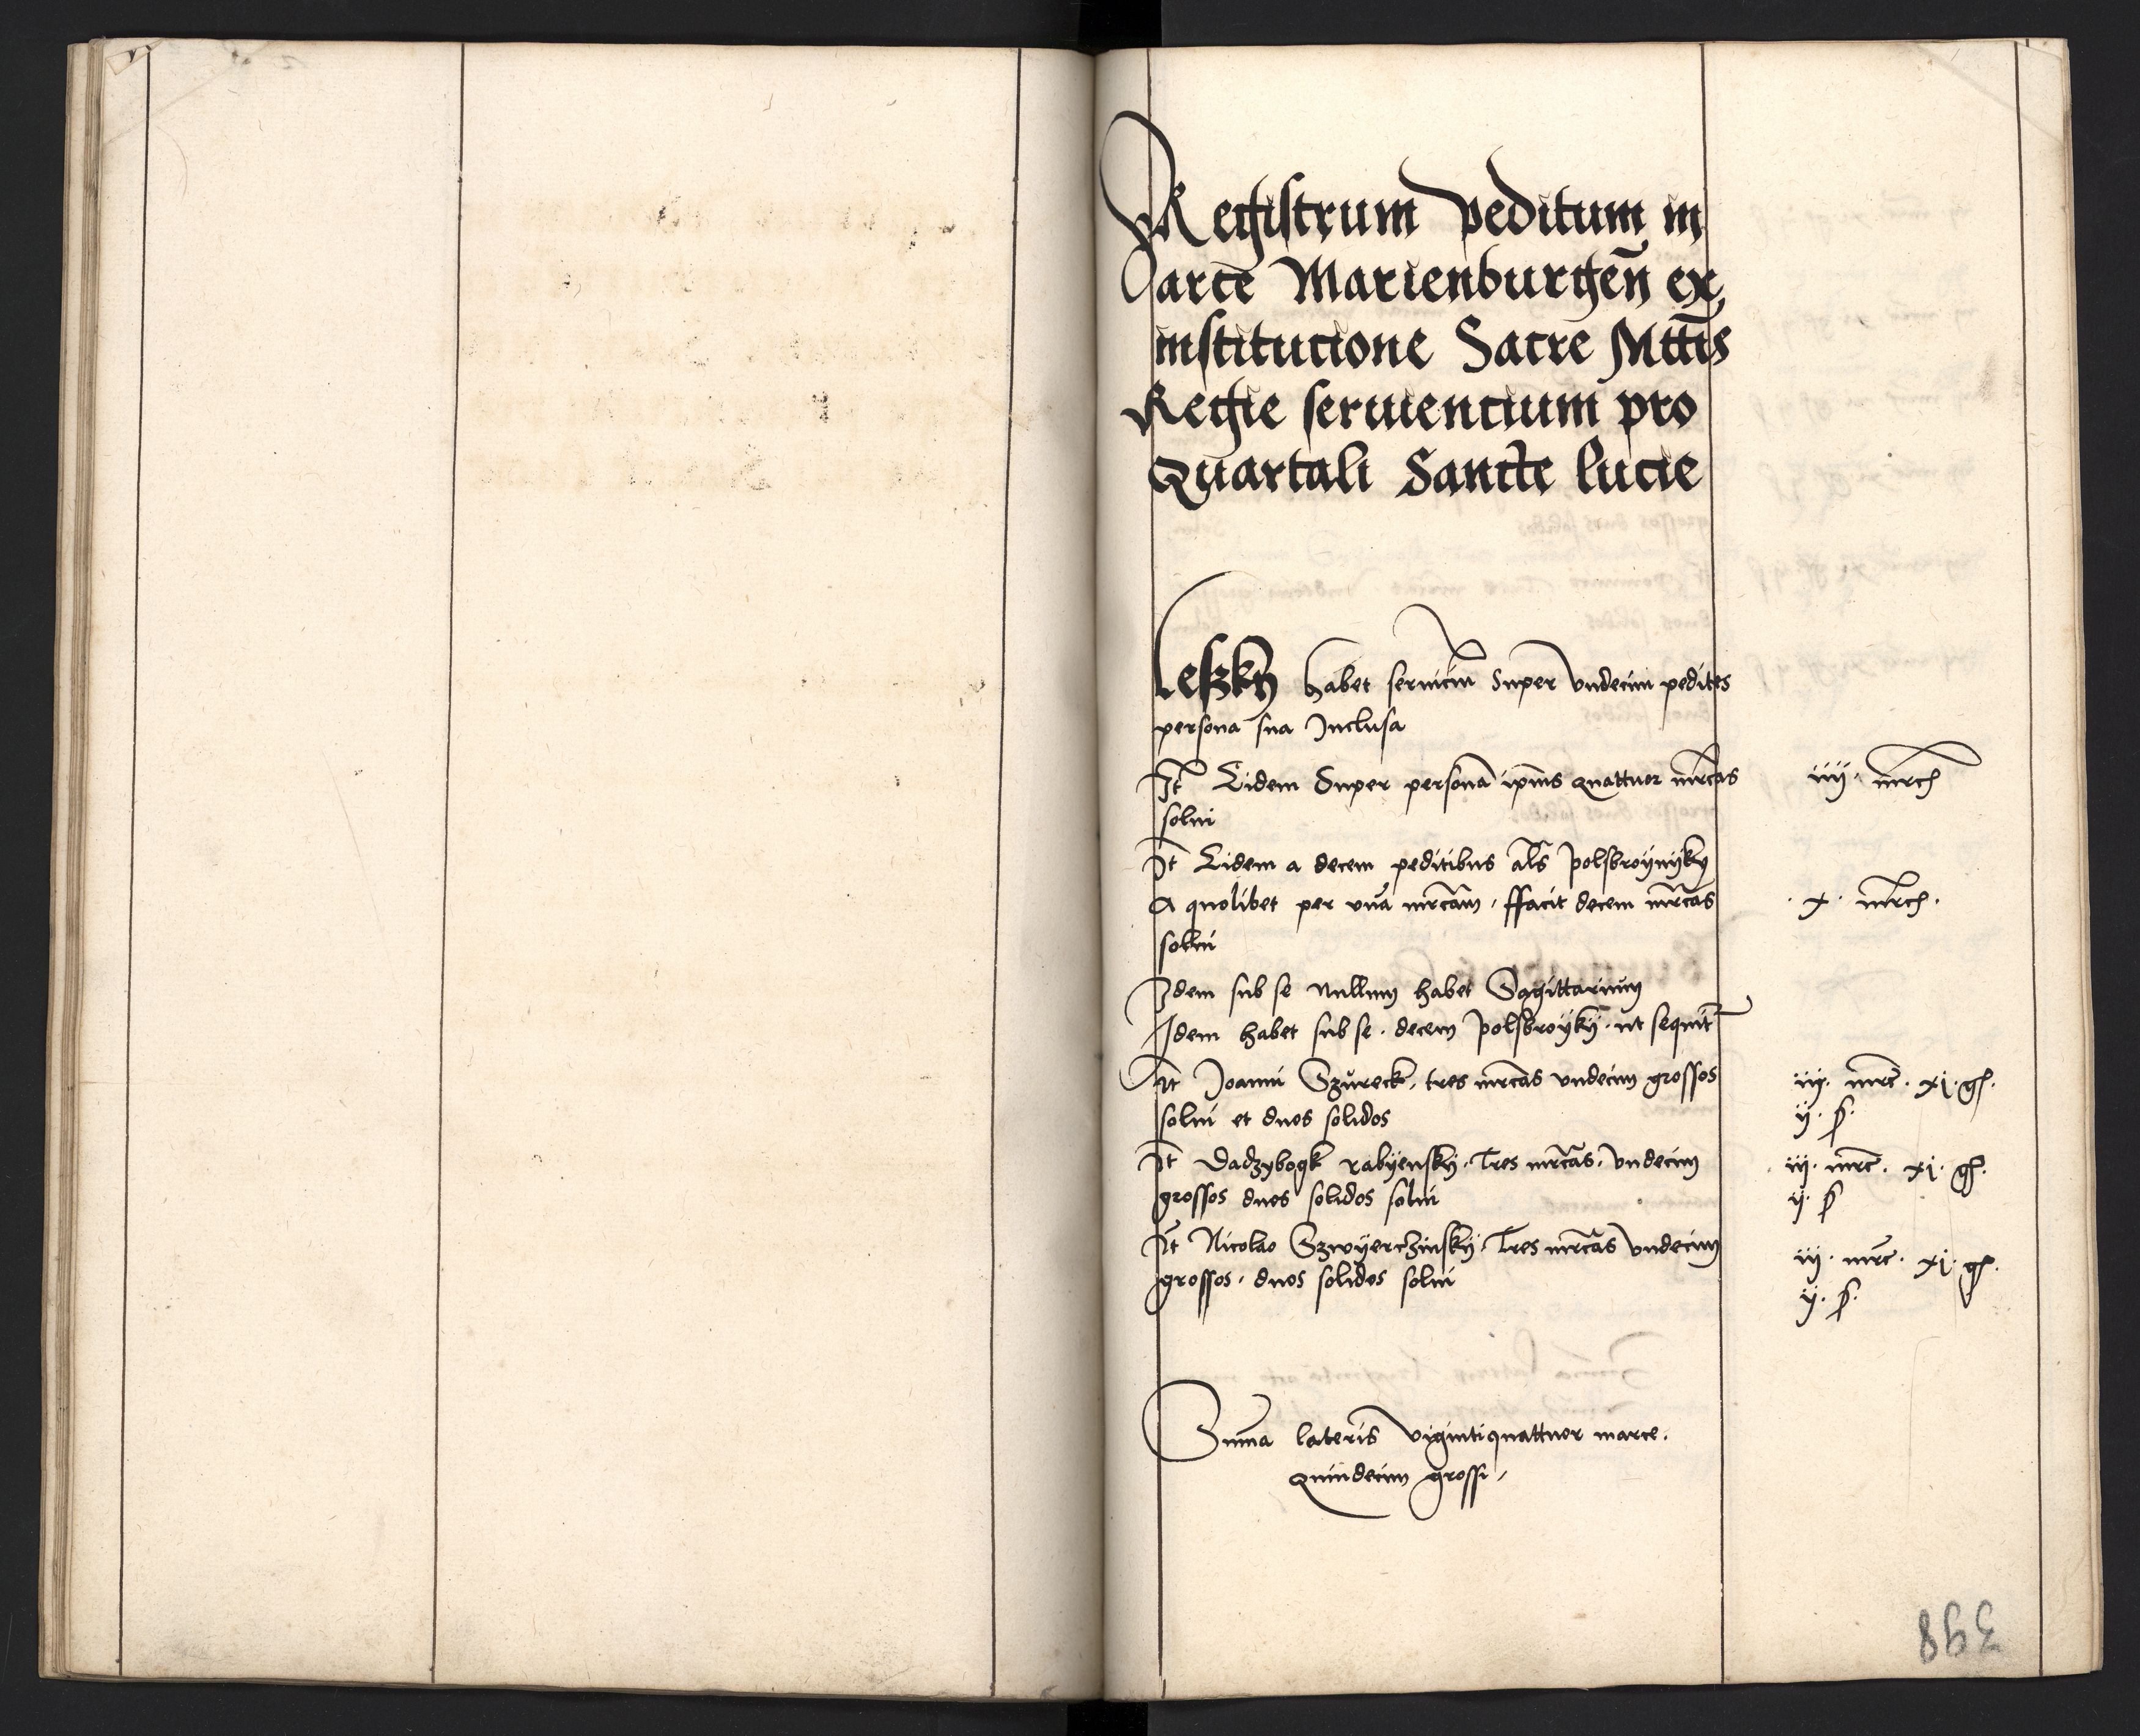 Registrum peditum in
arce Marienburgeñ ex
institucione Sacre Mttis
Regie seruiencium pro
Quartali Sancte lucie
Leszky habet seruiciu͂ Super vndecim pedites
persona sua Inclusa
It͂ Eidem Super persona͂ ip̃ius quattuor mrcas
solui
iiij. mrc͂
It͂ Eidem a decem peditibus al͂s polsbroynyky
A quolibet per vna͂ mrcam, ffacit decem mrcas
solui
. x . mrc͂ .
Idem sub se nullum habet Sagittarium
Idem habet sub se . decem polsbroyky . ut sequit͂
It͂ Joanni Szureck, tres mrcas vndecim grossos
solui et duos solidos
iij . mrc͂ . xj . g͂ .
ij . s͂ .
It͂ Dadzybogk rabyensky . Tres mrcas . vndecim
grossos duos solidos solui
. iij . mrc͂ . xj . g͂ .
ij . s͂
It͂ Nicolao Szwyerczinsky . Tres mrcas vndecim
grossos . duos solidos solui
iij . mrc͂ . xj . g͂ .
ij . s͂ .
Sum͂a lateris vigintiquattuor marce .
quindecim grossi ,
398